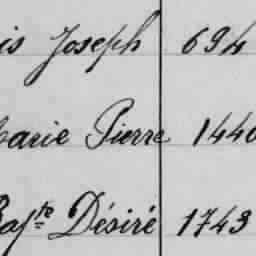 is Joseph 694
Marie Pierre 1440
Bapte Désiré 1743